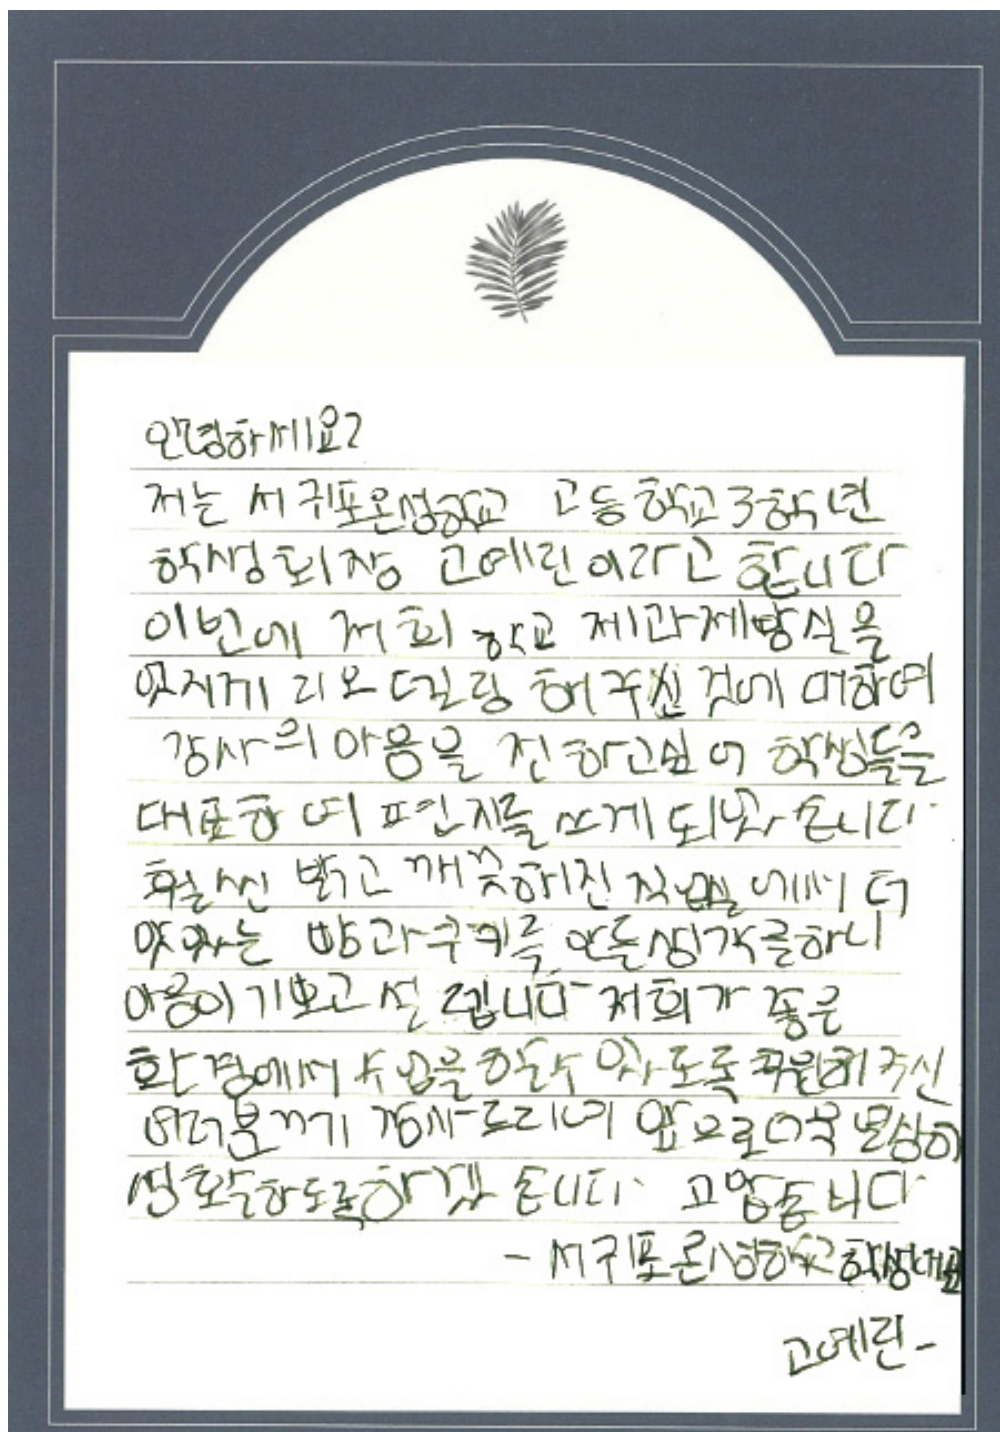 안녕하세요?
저는 서귀포온성학교 고등학교 3학년
학생회장 고예린이라고 합니다
이번에 저희 학교 제과제빵실을
멋지게 리모델링 해주신 것에 대하여
감사의 마음을 전하고싶어 학생들을
대표하여 편지를 쓰게 되었습니다.
훨씬 밝고 깨끗해진 에서 더
맛있는 빵과쿠키를 만들생각을하니
마음이 기쁘고 설렙니다 저희가 좋은
환경에서 수업을 할수 있도록 지원해주신
여러분께 감사드리며 앞으로더욱 열심히
생활하도록하겠습니다. 고맙습니다
- 서귀포온성학교 학생대표
고예린-